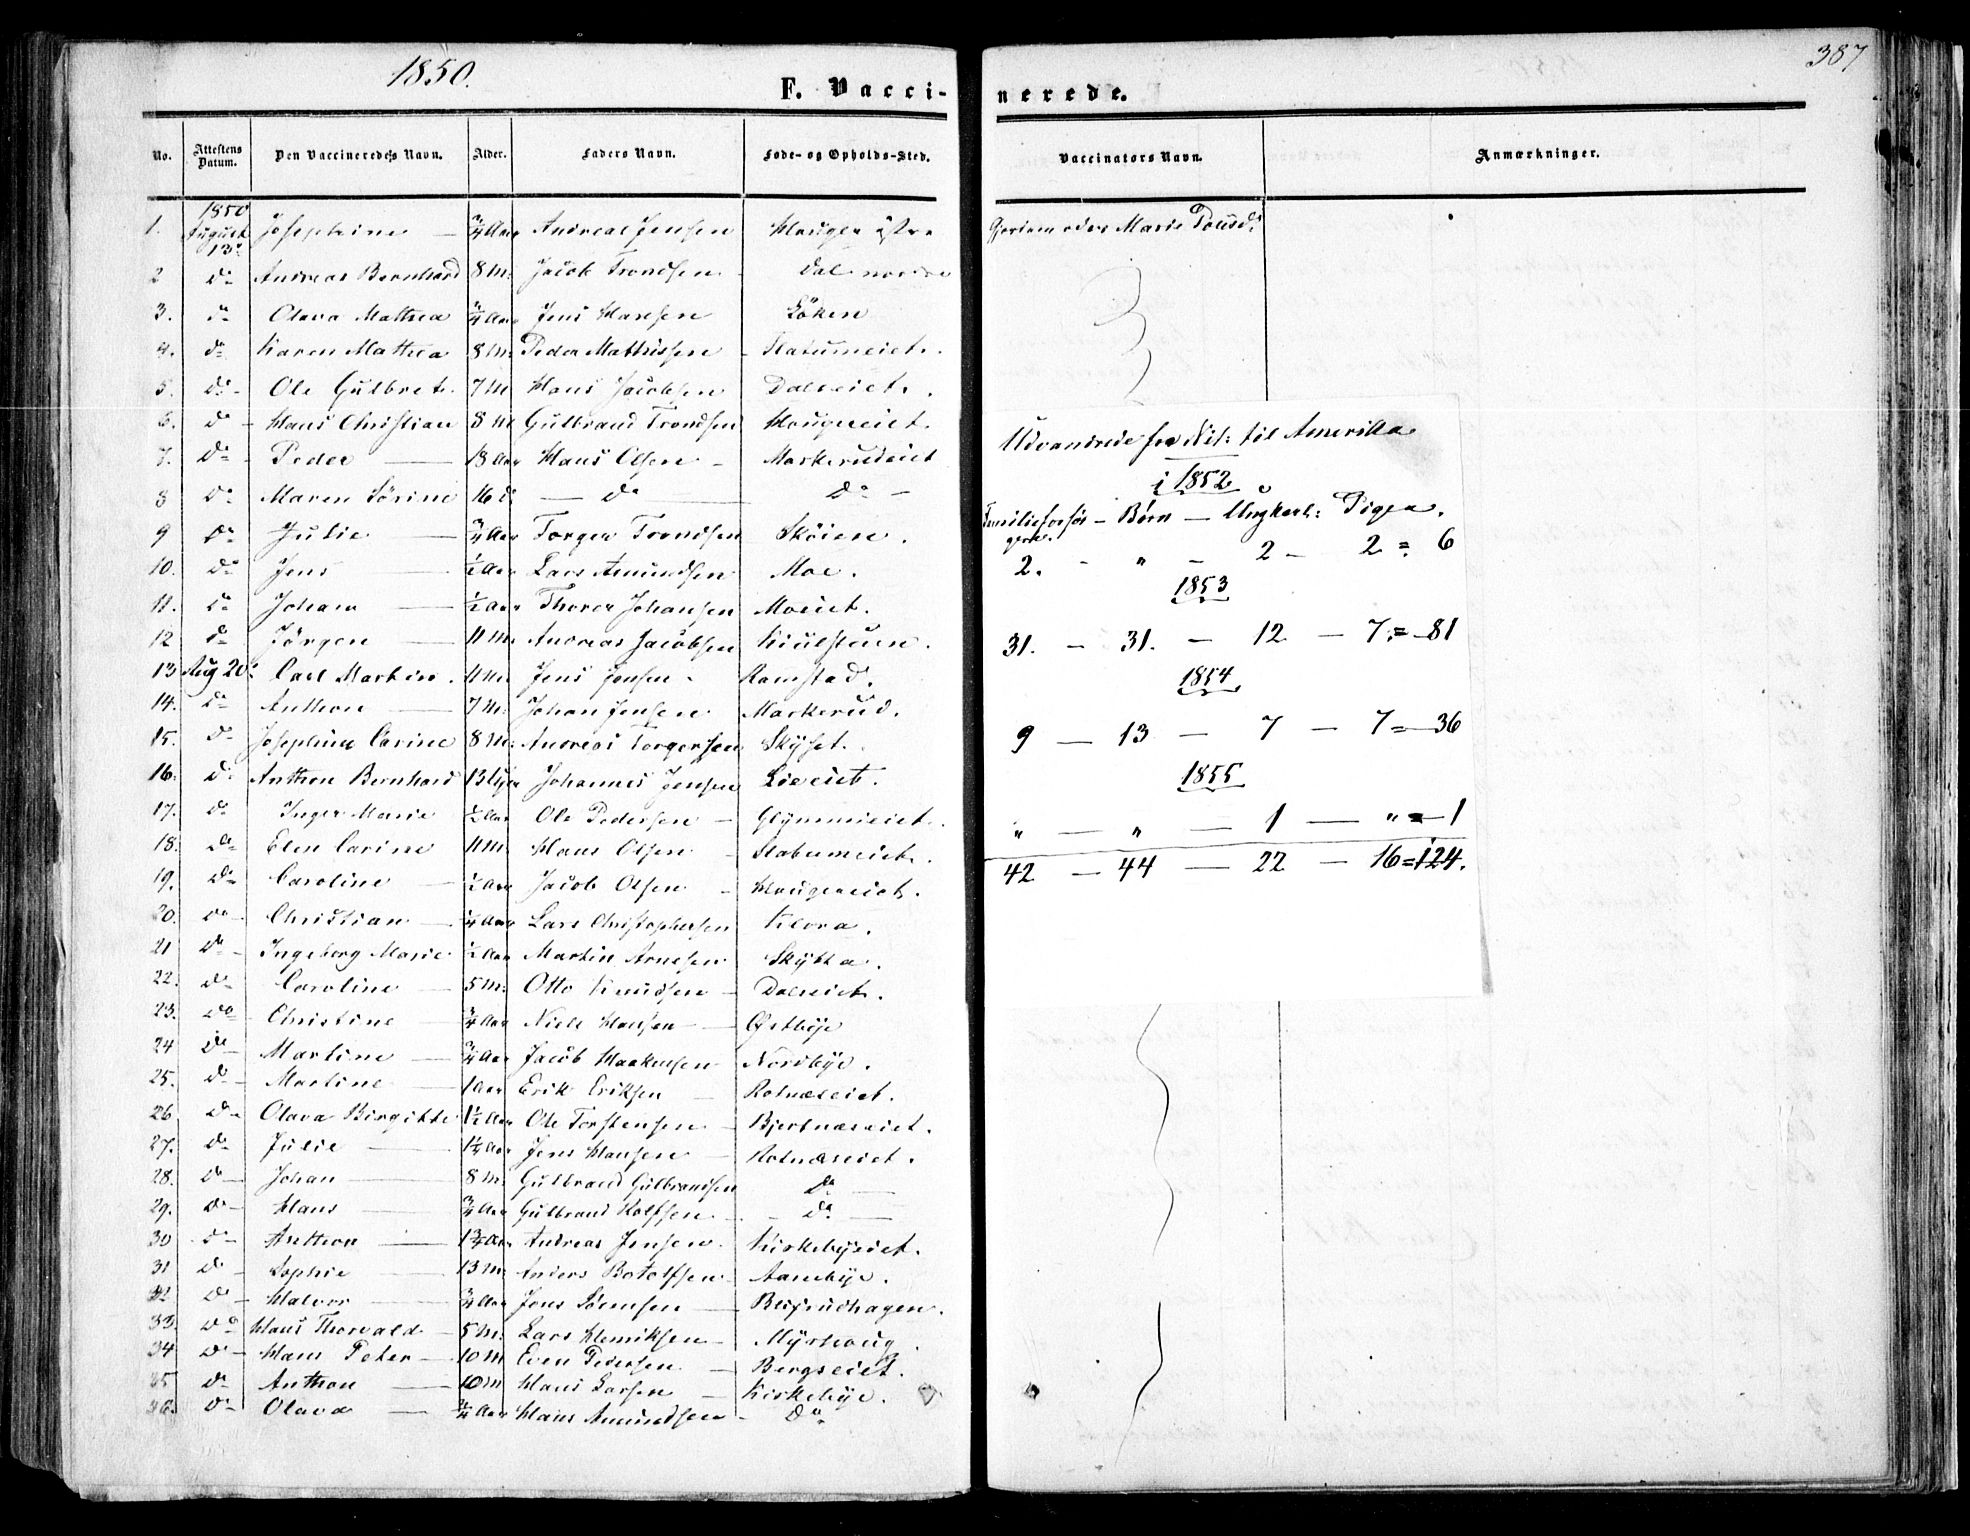 1850.
387
F. Vacci- nerede.
No. Attestens Datum. Den Vaccineredes Navn. Alder. Faders Navn. Føde- og Opholds-Sted. Vaccinators Navn. Anmærkninger.
1. 1850 August 13de Josephine — 3/4 Aar Andreas Jensen Hougen østre Gjordemoder Marie Poulsd:
2 do Andreas Bernhard 8 M: Jacob Trondsen - Dal nordre
3. do Olava Mathea 3/4 Aar Jens Hansen Löken
4. do Karen Mathea 8 M: Peder Mathissen - Slatumeiet.
5. do - Ole Gulbrand 7 M Hans Jacobsen Dalseiet.
6. do - Hans Christian 8 M Gulbrand Trondsen Hougeneiet.
7. do Peder — 13 Aar Hans Olsen - Markerudeiet
8 do Maren Sörine 16 do — do — do -
9 do Julie — 3/4 Aar Torger Trondsen Sköien.
10. do Jens — 1/2 Aar Lars Amundsen Moe.
11. do Johan — 1/2 Aar Thorer Johansen Moeiet.
12 do Jörgen — 11 M. Andreas Jacobsen Kiulstuen.
13 Aug 20de Carl Martin. 11 M. Jens Jensen - Ramstad.
14. do Anthon — 7 M. Johan Jensen Markerud.
15. do Josephine Carine 8 M. Andreas Torgersen Skyset.
16. do Anthon Bernhard 13 Uger Johannes Jensen Lieeiet.
17. do Inger Marie 1/2 Aar Ole Pedersen - Glymmeeiet.
18. do Elen Carine 11 M. Hans Olsen - Slatumeiet.
19. do Caroline — 1/2 Aar Jacob Olsen - Hougeneiet.
20. do - Christian — 1/4 Aar Lars Christophersen Klora.
21 do - Ingeborg Marie 1/2 Aar Martin Arnesen Skytta.
22. do - Caroline — 5 M. Otto Knudsen - Dalseiet.
23. do Christine — 3/4 Aar Niels Hansen - Østbye
24 do - Martine — 3/4 Aar Jacob Haakensen Nordbye.
25. do - Martine — 1 Aar Erik Eriksen - Rotnæseiet.
26 do - Olava Birgitte 1 1/2 Aar Ole Torstensen - Bjertnæseiet.
27. do - Julie — 1 1/4 Aar Jens Hansen - Rotnæseiet.
28. do - Johan — 8 M. Gulbrand Gulbrandsen do —
29. do - Hans — 3/4 Aar Gulbrand Rolfsen - do —
30 do - Anthon — 1 3/4 Aar Andreas Jensen - Kirkebyeiet.
31 do - Sophie — 13 M. Anders Botolfsen - Aanebye.
32 do - Halvor — 3/4 Aar Jens Sörensen — Bussrudhagen.
33. do - Hans Thorvald - 5 M. Lars Henriksen - Myrhoug.
34 do - Hans Peter - 10 M Even Pedersen - Bergseiet.
35 do Anthon — 10 M Hans Larsen - Kirkebye.
36. do Olava — 3/4 Aar Hans Amundsen - do
Udvandrede fra Nit: til Amerika
i 1852
Familieforsör- gere. - Börn - Ungkarl: Piger.
2. - " - 2 - 2 = 6
1853
31. - 31. - 12 - 7 = 81
1854
9 - 13 - 7 - 7 = 36
1855
" - " - 1 - " = 1
42 - 44 - 22 - 16 = 124.